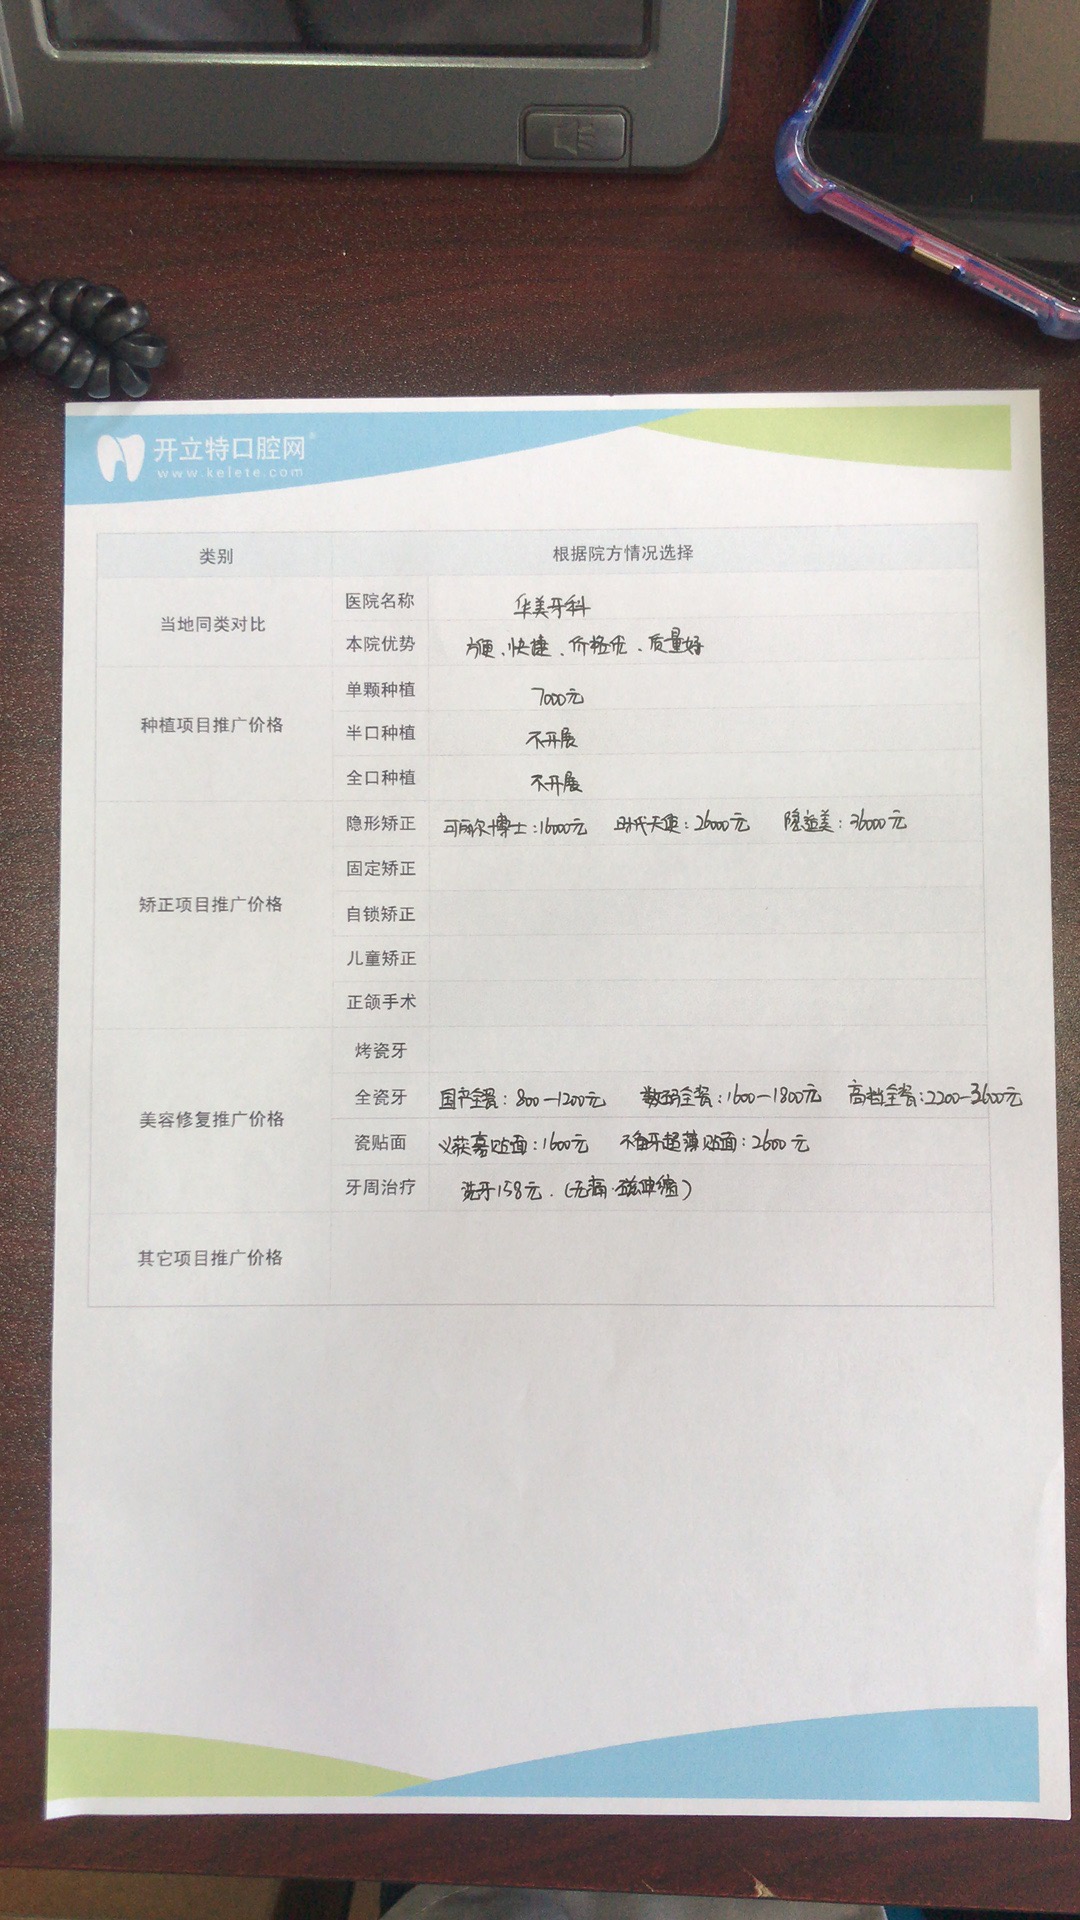 开立特口腔网®
www.kelete.com
类别 根据院方情况选择
当地同类对比
医院名称 华美牙科
本院优势 方便、快捷、价格优、质量好
种植项目推广价格
单颗种植 7000元
半口种植 不开展
全口种植 不开展
矫正项目推广价格
隐形矫正 可丽尔博士:16000元 时代天使:26000元 隐适美:36000元
固定矫正
自锁矫正
儿童矫正
正颌手术
美容修复推广价格
烤瓷牙
全瓷牙 国产全瓷:800—1200元 数码全瓷:1600—1800元 高档全瓷:2200—3600元
瓷贴面 义获嘉贴面:1600元 不备牙超薄贴面:2600元
牙周治疗 洗牙158元.(无痛·)
其它项目推广价格